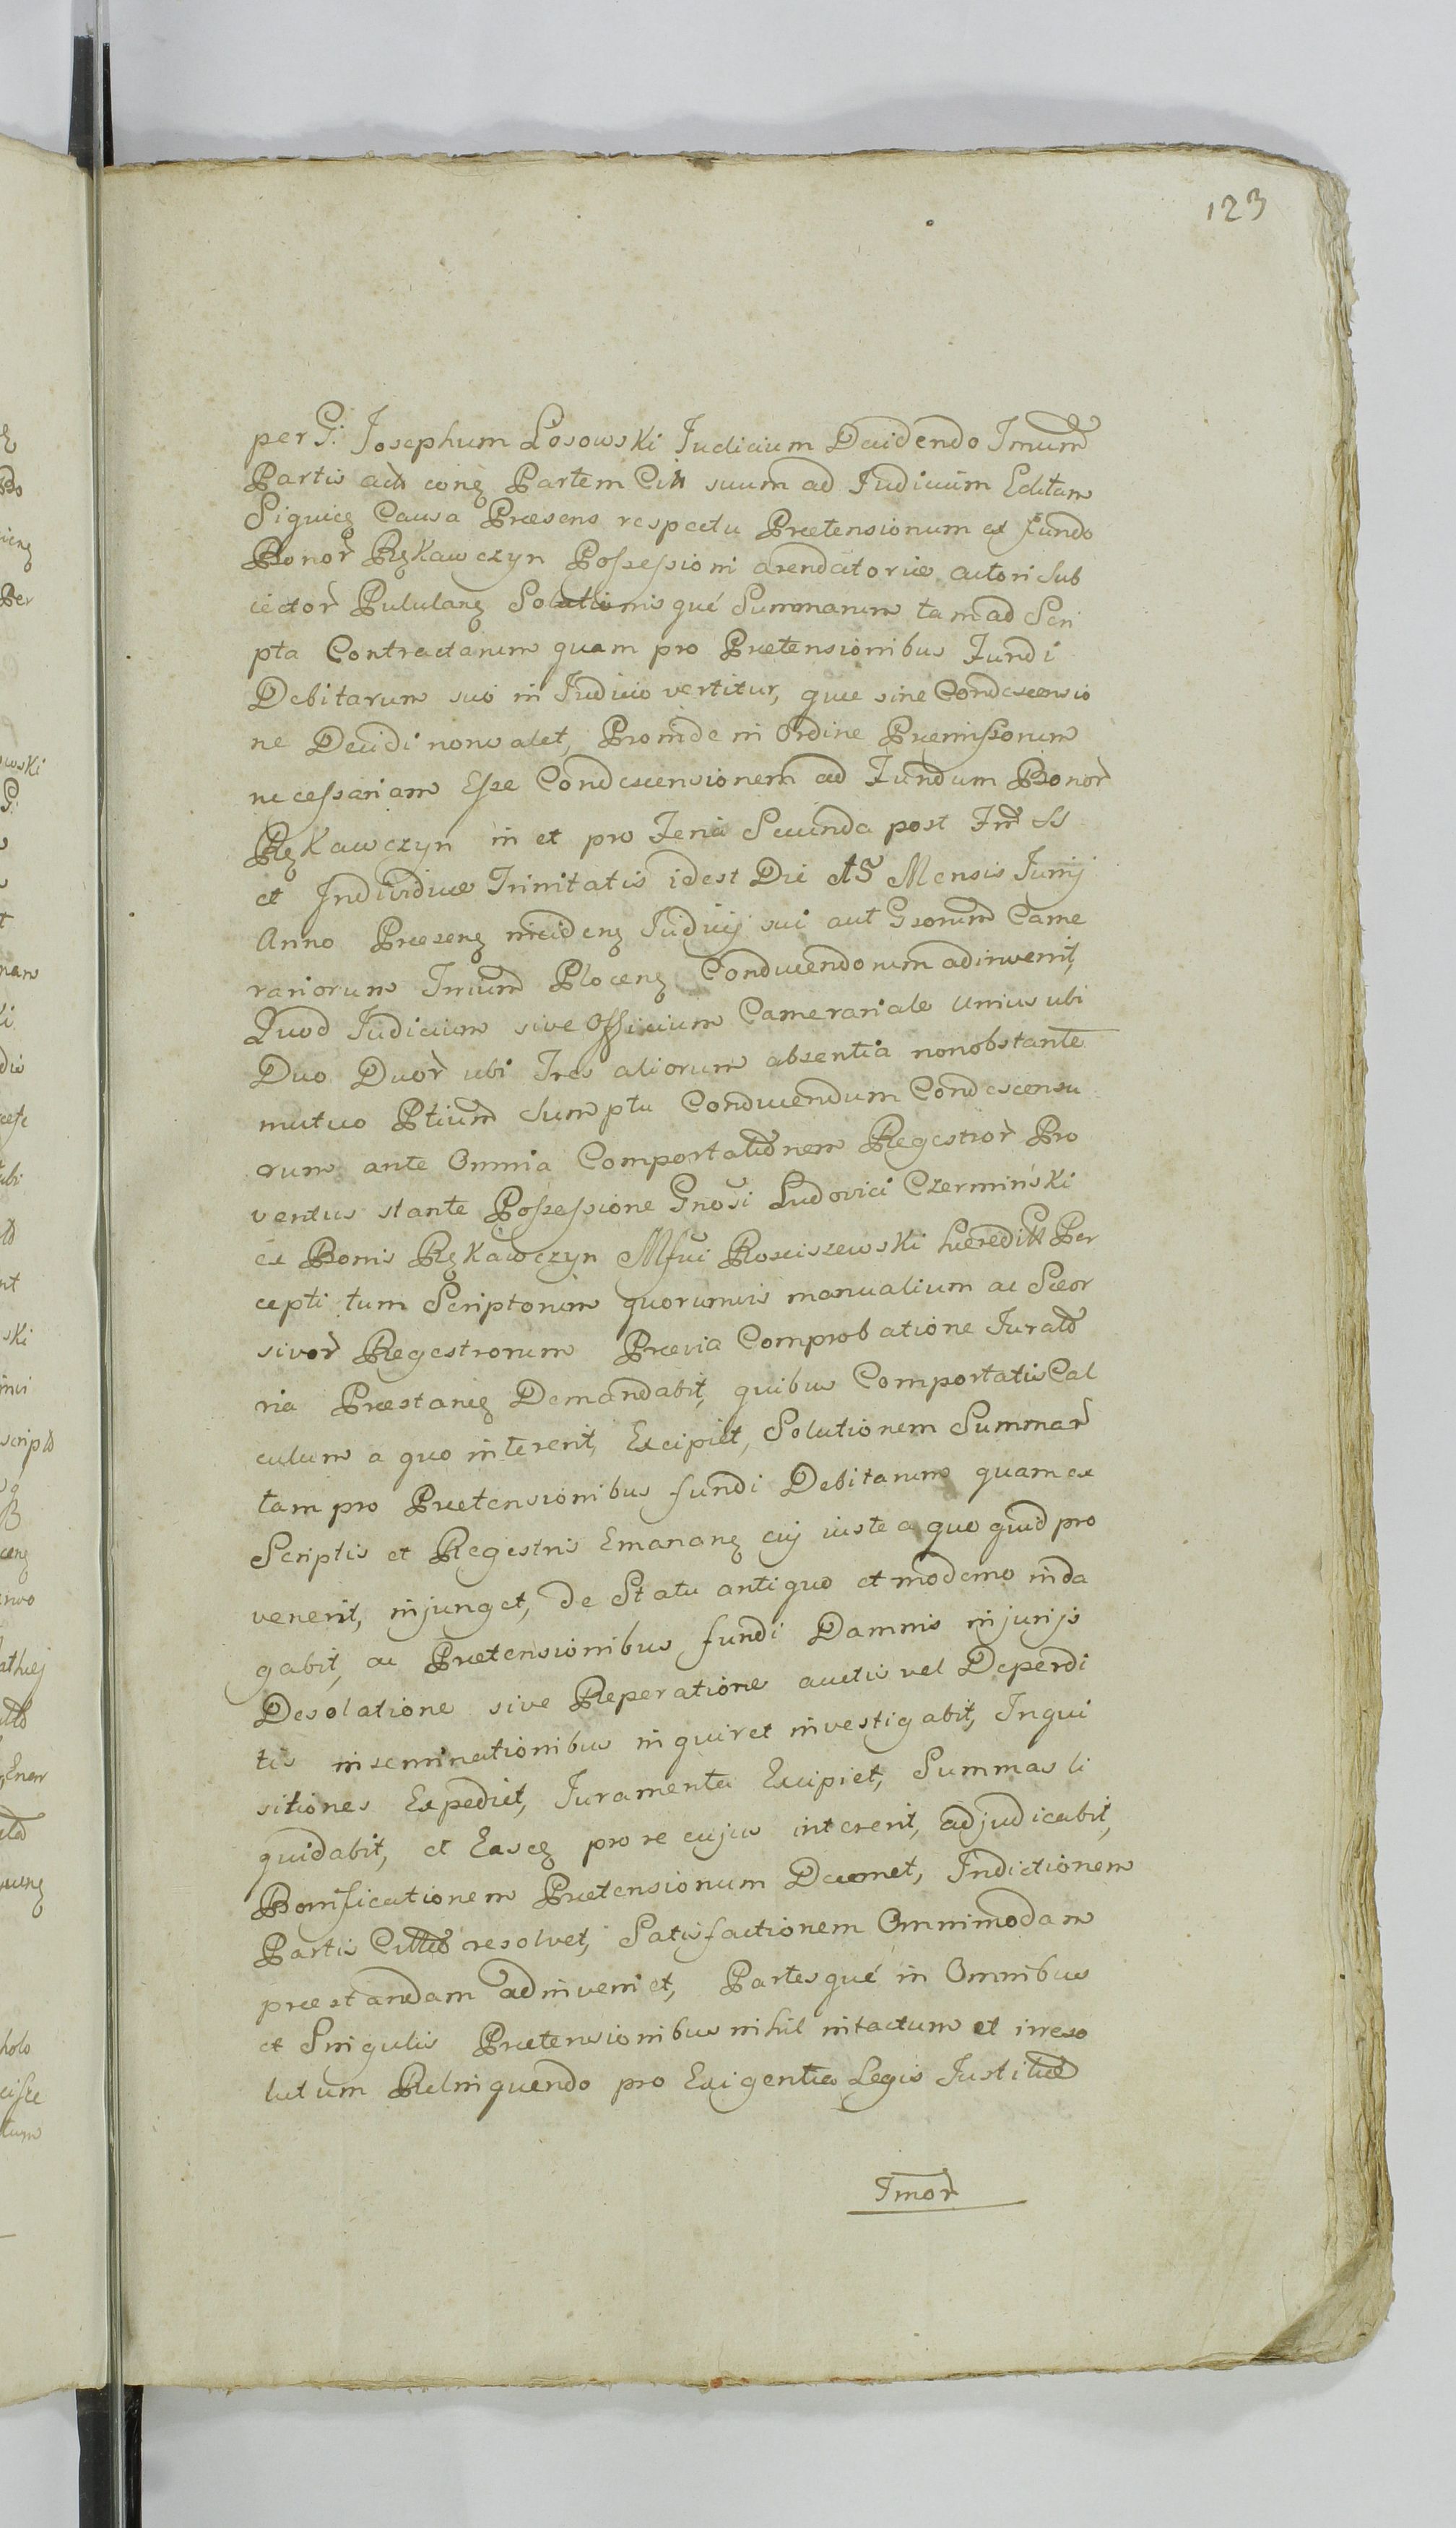 123
per G. Josephum Łosowski Judicium Decidendo Tmum̃
Partis act conꝫ Partem Citt suum ad Judicium Editam
Siquicꝫ Causa Præsens respectu Prætensionum ex fundo
Bonor̃ Rękawczyn Possessioni arendatoriæ actori sub
iector̃ Pululanꝫ Solutionisqué Summarum tam ad Scri
pta Contractarum quam pro Prætensionibus Fundi
Debitarum suo in Judicio vertitur, quæ sine Condescensio
ne Decidi non valet, Proinde in Ordine Præmissorum
necessariam Esse Condescensionem ad Fundum Bonor̃
Rękawczyn in et pro Feria Secunda post Fm̃ SS
et Individuæ Trinitatis idest Die 15 Mensis Junij
Anno Præsenꝫ incidenꝫ Judicij sui aut Gsorum Came
rariorum Trium̃ Plocenꝫ Conducendorum adinvenit,
Quod Judicium sive Officium Camerariale Unius ubi
Duo Duor̃ ubi Tres aliorum absentia nonobstante
mutuo Ptium̃ Sumptu Conducendum Condescensu
rum ante Omnia Comportatõnem Regestror̃ Pro
ventus stante Possessione Gnosi Ludovici Czerminski
ex Bonis Rękawczyn Mfici Rosciszewski hæreditt Per
cepti tum Scriptorum quorumvis manualium ac Sæor
sivor̃ Regestrorum Prævia Comprobatione Jurato
ria Præstancꝫ Demandabit, quibus Comportatis Cal
culum a quo intererit, Excipiet, Solutionem Summar̃
tam pro Prætensionibus fundi Debitarum quam ex
Scriptis et Regestris Emananꝫ cuj iuste a quo quid pro
venerit, injunget, de Statu antiquo et moderno inda
gabit, ac Prætensionibus fundi Damnis injurijs
Desolatione sive Reperatione auctis vel Deperdi
tis inseminationibus inquiret investigabit, Inqui
sitiones Expediet, Juramenta Excipiet, Summas li
quidabit, et Eascꝫ pro re cujus intererit, adjudicabit,
Bonificationem Prætensionum Decernet, Indictionem
Partis Cittæ resolvet, Satisfactionem Omnimodam
præstandam adinveniet, Partesqué in Omnibus
et Singulis Prætensionibus nihil intactum et irreso
lutum Relinquendo pro Exigentia Legis Justitiæ
Tmor̃